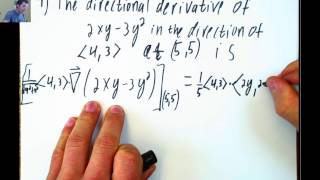 1) The directional derivative of
2xy-3y² in the direction of
<4,3> at (5,5) is
[1/√(4²+3²) <4,3>·∇⃗(2xy-3y²)]|(5,5) = 1/5 <4,3>·<2y, 2x